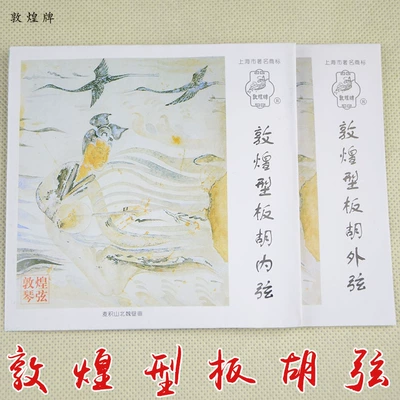 敦煌牌
上海市著名商标
敦煌牌
®
敦煌型板胡内弦
敦煌琴弦
麦积山北魏壁画
上海市著名商标
敦煌牌
®
敦煌型板胡外弦
敦煌型板胡弦